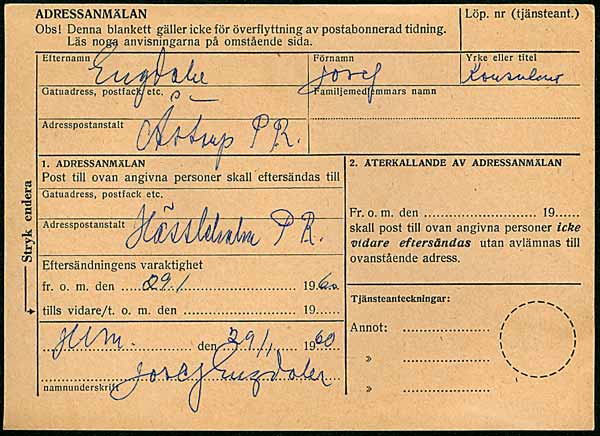 ADRESSANMÄLAN
Obs! Denna blankett gäller icke för överflyttning av postabonnerad tidning.
Läs noga anvisningarna på omstående sida.
Löp. nr (tjänsteant.)
Efternamn Förnamn Yrke eller titel
Engdahl Josef Konsulent
Gatuadress, postfack etc. Familjemedlemmars namn
Adresspostanstalt
Åstorp P R.
1. ADRESSANMÄLAN
Post till ovan angivna personer skall eftersändas till
Gatuadress, postfack etc.
Adresspostanstalt
Hässleholm P R.
Eftersändningens varaktighet
fr. o. m. den 29/1 1960
tills vidare/t. o. m. den 19
Hlm. den 29/1 1960
Josef Engdahl
namnunderskrift
Stryk endera
2. ATERKALLANDE AV ADRESSANMÄLAN
Fr. o. m. den 19
skall post till ovan angivna personer icke
vidare eftersändas utan avlämnas till
ovanstående adress.
Tjänsteanteckningar:
Annot:
»
»